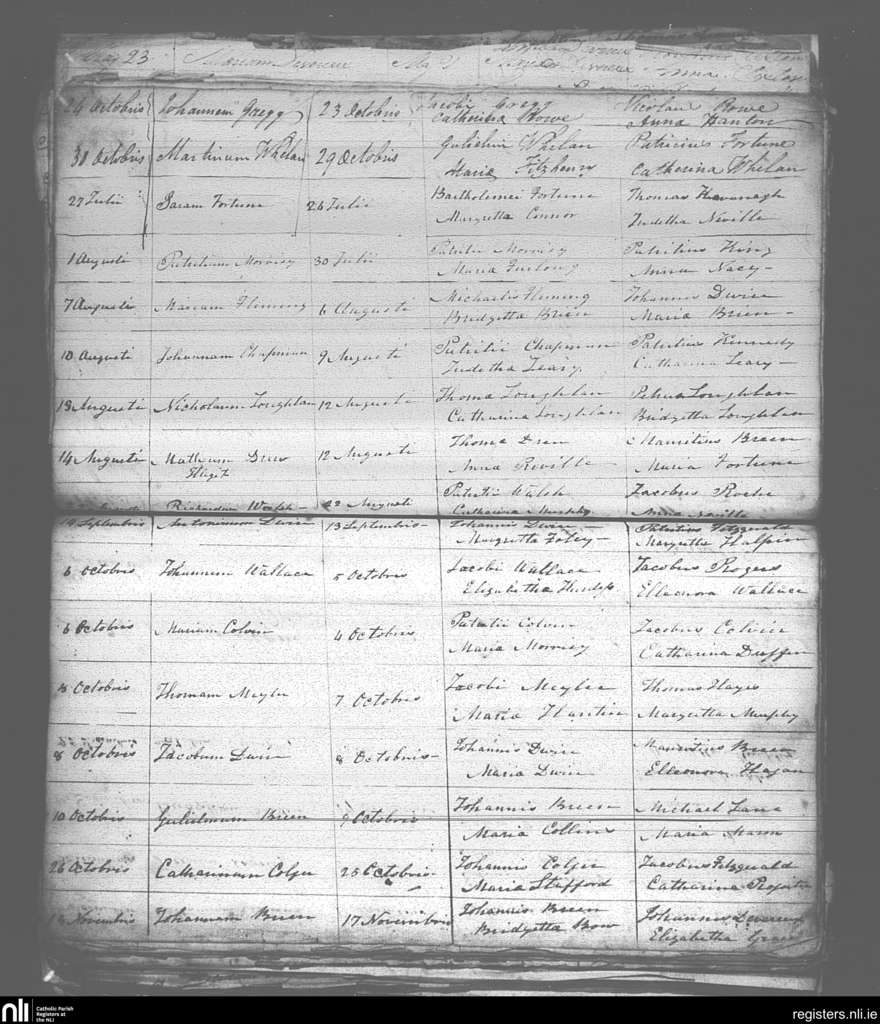 23
24 Octobris Johannem Gregg 23 Octobris Jacobi Gregg Nicolaus Rowe
Catherina Rowe Anna Hanton
30 Octobris Martinum Whelan 29 Octobris Gulielmi Whelan Patricius Fortune
Maria Fitzhenry Catherina Whelan
27 Julii Saram Fortune 26 Julii Bartholemei Fortune Thomas Kavanagh
Margretta Connor Judetha Neville
1 Augusti Patritium Morrisy 30 Julii Patritii Morrisy Patritius King
Maria Furlong Anna
7 Augusti Mariam Fleming 6 Augusti Michaelis Fleming Johannes Dwire
Bridgetta Brien Maria Brien
10 Augusti Johannam Chapman 9 Augusti Patritii Chapman Patritius Kennedy
Judetha Leary Catharina Leary
13 Augusti Nicholaum Loughlan 12 Augusti Thoma Loughlan Petrus Loughlan
Catharina Loughlan Bridgetta Loughlan
14 Augusti Matheum 12 Augusti Thoma Mauritius Breen
Anna Reville Maria Fortune
Richardum Walsh 22 Augusti Patritii Walsh Jacobus Roche
Catharina Murphy Anna Neville
14 Septembris Antonium Dwire 13 Septembris Johannis Dwire Patritius Fitzgerald
Margretta Foley Margretta Halpin
6 Octobris Johannem Wallace 5 Octobris Jacobi Wallace Jacobus Rogers
Elizabetha Elleonora Wallace
6 Octobris Mariam Colvin 4 Octobris Patritii Colvin Jacobus Colvin
Maria Morrisy Catharina
8 Octobris Thomam Meyler 7 Octobris Jacobi Meyler Thomas Hayes
Maria Margretta Murphy
8 Octobris Jacobum Dwire 8 Octobris Johannis Dwire Mauritius Breen
Maria Dwire Elleonora Hagan
10 Octobris Gulielmum Brien 9 Octobris Johannis Brien Michael
Maria Collins Maria
26 Octobris Catharinam Colfer 25 Octobris Johannis Colfer Jacobus Fitzgerald
Maria Stafford Catharina
Novembris Johannam Brien 17 Novembris Johannis Brien Johannes Devereux
Bridgetta Bow Elizabetha
nli Catholic Parish
Registers at
the NLI
registers.nli.ie